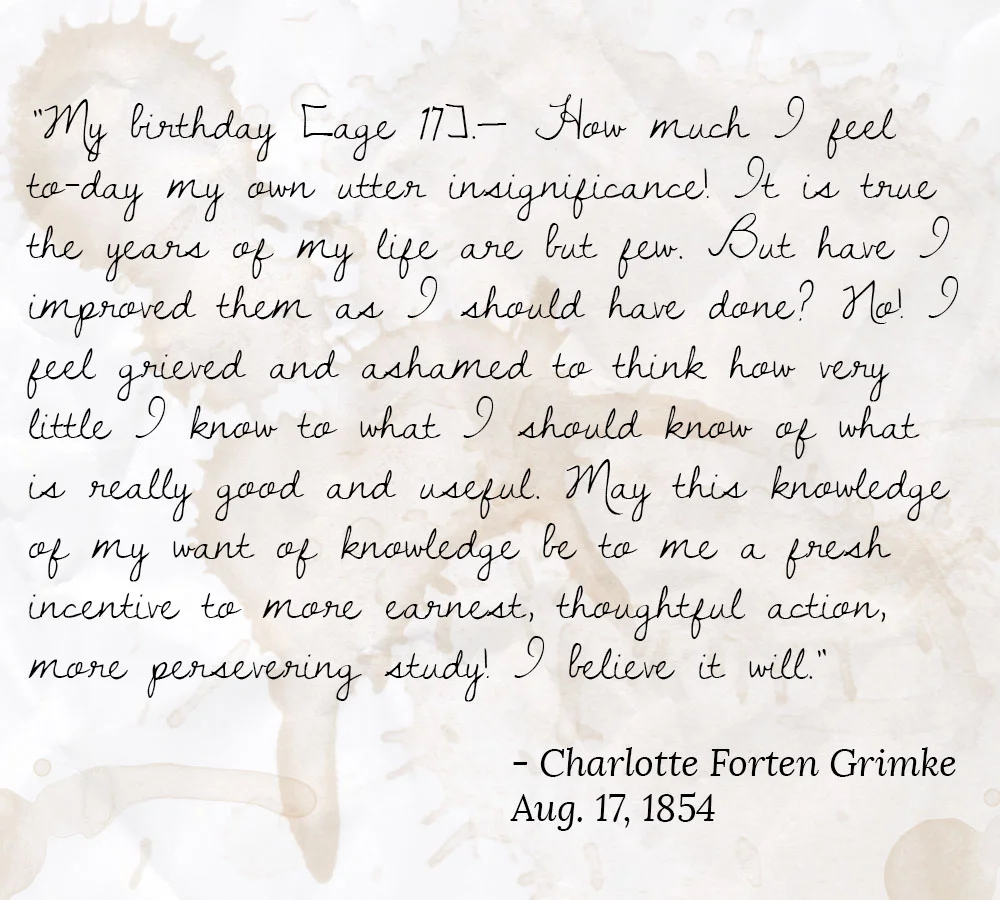 "My birthday [age 17].— How much I feel
to-day my own utter insignificance! It is true
the years of my life are but few. But have I
improved them as I should have done? No! I
feel grieved and ashamed to think how very
little I know to what I should know of what
is really good and useful. May this knowledge
of my want of knowledge be to me a fresh
incentive to more earnest, thoughtful action,
more persevering study! I believe it will."
- Charlotte Forten Grimke
Aug. 17, 1854